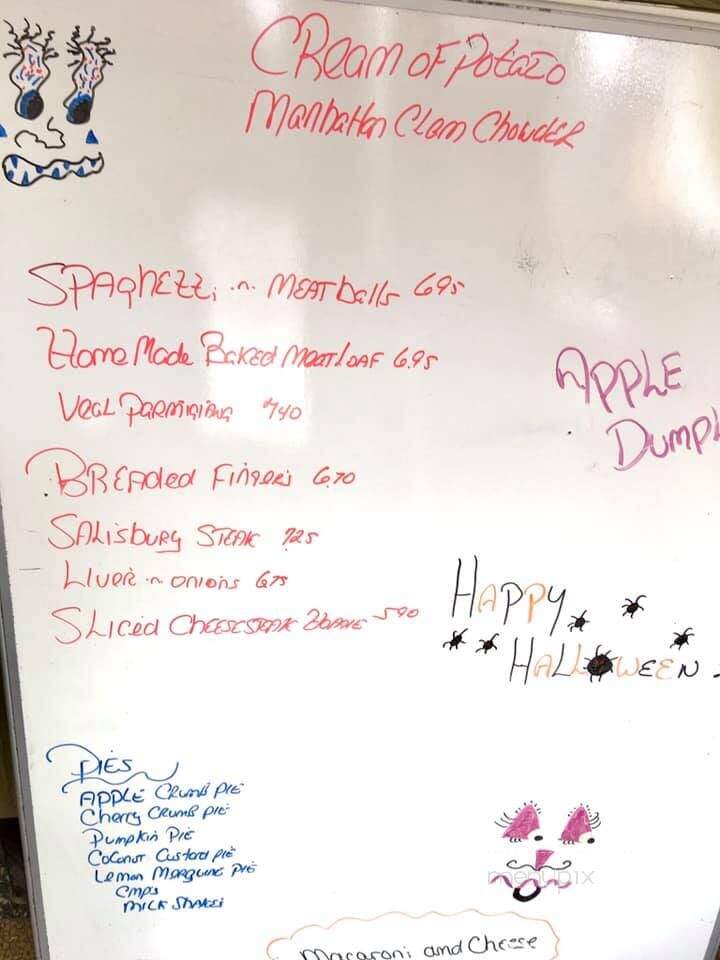 CREam OF Potato
Manhattan Clam Chowder
SPAghetti n MEATballs 6.95
Home Made Baked MeatLoaf 6.95
Veal Parmigiana $7.40
BREAded Fingers 6.70
SALisbury STEAK 7.25
Liver n onions 6.75
SLiced CheeseSteak 5.90
APPLE
DUMPL
HAPPY
HALLOWEEN
PiES
APPLE Crumb PiE
Cherry Crumb PiE
Pumpkin PiE
Coconut Custard PiE
Lemon Merqune PiE
CMPS
MILK Shakes
menupix
Macaroni and Cheese